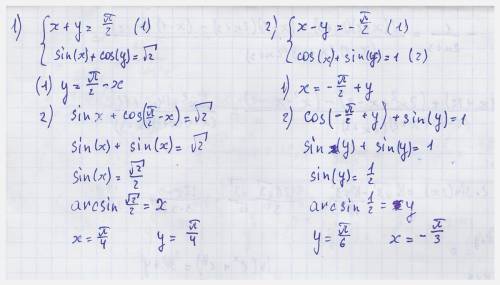 1) { x + y = π/2 (1)
sin(x) + cos(y) = √2
(1) y = π/2 - x
2) sin x + cos(π/2 - x) = √2
sin(x) + sin(x) = √2
sin(x) = √2/2
arcsin √2/2 = x
x = π/4 y = π/4
2) { x - y = - π/2 (1)
cos(x) + sin(y) = 1 (2)
1) x = - π/2 + y
2) cos(- π/2 + y) + sin(y) = 1
sin(y) + sin(y) = 1
sin(y) = 1/2
arcsin 1/2 = y
y = π/6 x = - π/3